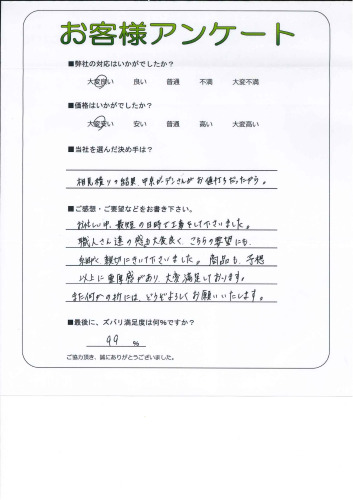 お客様アンケート
■弊社の対応はいかがでしたか？
大変良い 良い 普通 不満 大変不満
■価格はいかがでしたか？
大変安い 安い 普通 高い 大変高い
■当社を選んだ決め手は？
相見積りの結果、中京ガーデンさんがお値打ちだったから。
■ご感想・ご要望などをお書き下さい。
お忙しい中、最短の日時で工事をして下さいました。
職人さん達の感じも大変良く、こちらの要望にも、
細かく、親切にきいて下さいました。商品も、予想
以上に重厚感があり、大変満足しております。
また何かの折には、どうぞよろしくお願いいたします。
■最後に、ズバリ満足度は何％ですか？
99 %
ご協力頂き、誠にありがとうございました。